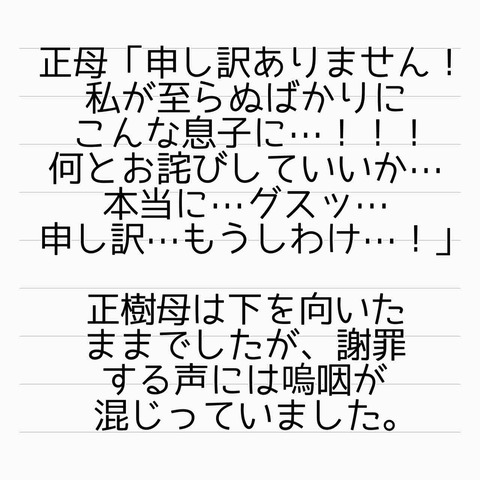 正母「申し訳ありません！
私が至らぬばかりに
こんな息子に…！！！
何とお詫びしていいか…
本当に…グスッ…
申し訳…もうしわけ…！」
正樹母は下を向いた
ままでしたが、謝罪
する声には嗚咽が
混じっていました。